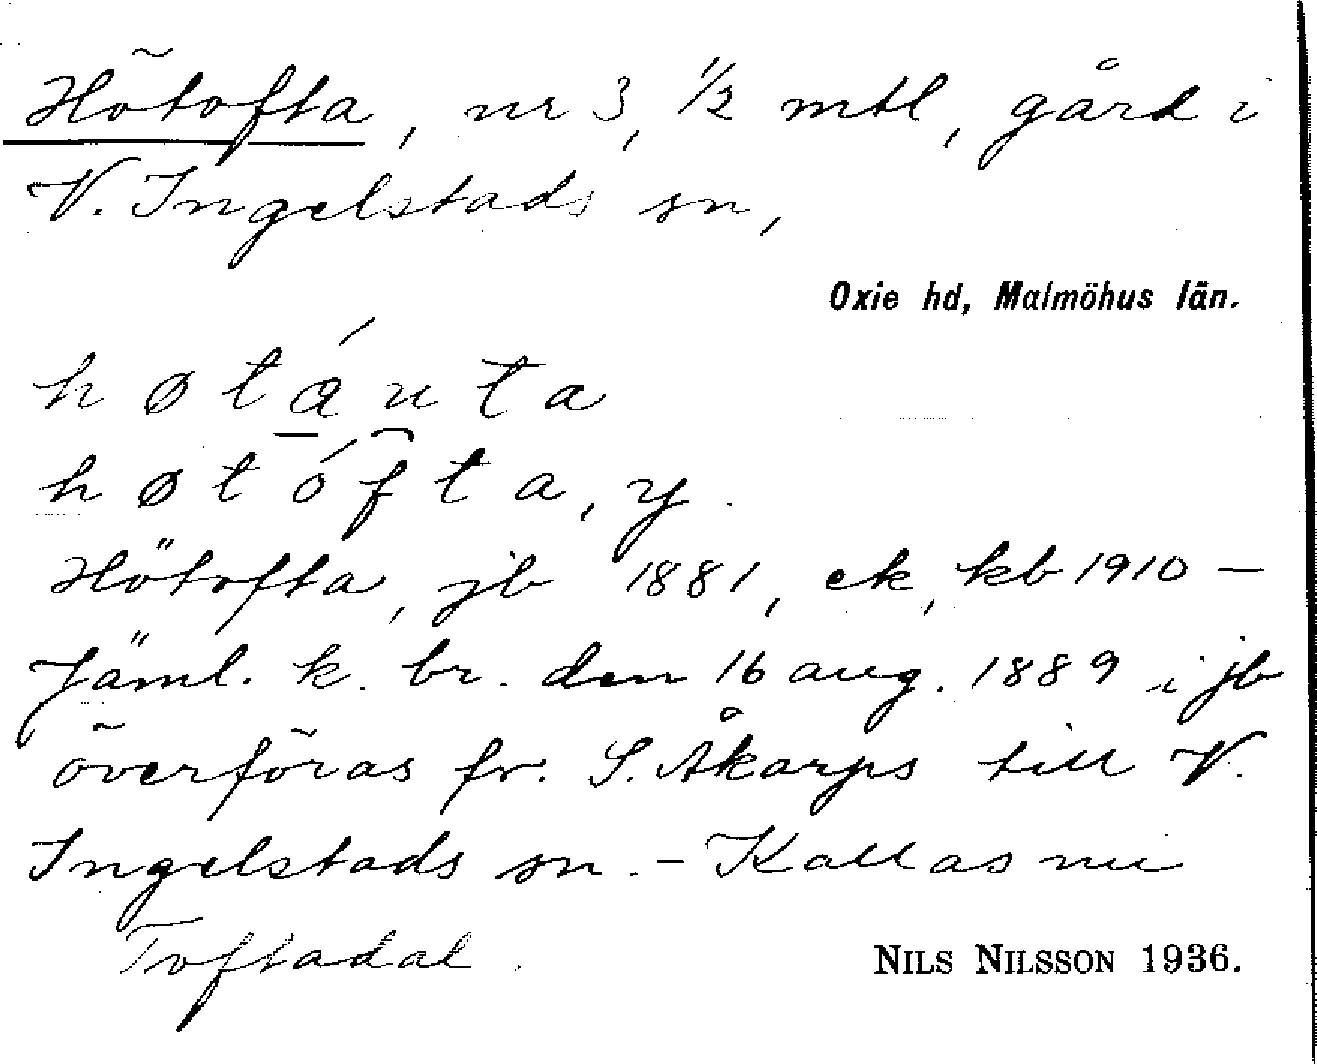 Hötofta, nr 3, 1/2 mtl, gård i
V. Ingelstads sn,
Oxie hd, Malmöhus län.
høtáuta
høtófta, y.
Hötofta, jb 1881, ek, kb 1910 —
Jäml. k. br. den 16 aug. 1889 i jb
överföras fr. S. Åkarps till V.
Ingelstads sn. – Kallas nu
Toftadal.
NILS NILSSON 1936.